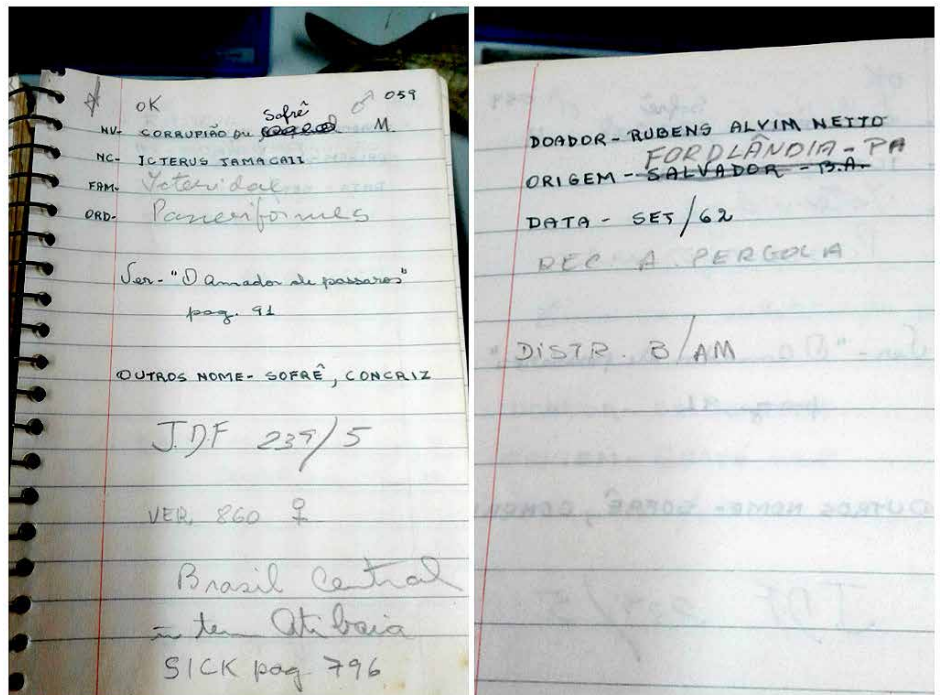 OK ♂ 059
NV- CORRUPIÃO OU Sofrê M.
NC- ICTERUS JAMACAII
FAM- Icteridae
ORD- Passeriformes
Ver- "O Amador de passaros"
pag. 91
OUTROS NOME- SOFRÊ, CONCRIZ
J.D.F 239/5
VER. 860 ♀
Brasil Central
ñ tem Atibaia
SICK pag 796
DOADOR- RUBENS ALVIM NETTO
FORDLÂNDIA - PA
ORIGEM - SALVADOR - B.A.
DATA - SET/62
REC A PERGOLA
DISTR. B/AM